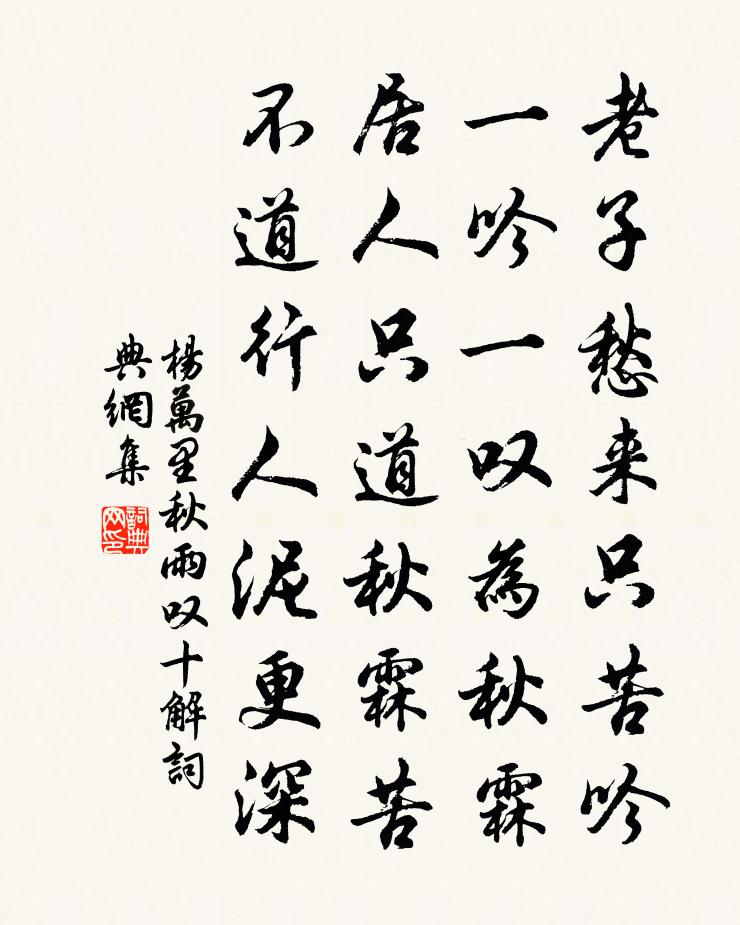 老子愁来只苦吟
一吟一叹為秋霖
居人只道秋霖苦
不道行人泥更深
楊萬里秋雨叹十解詞
典網集
詞典
网印